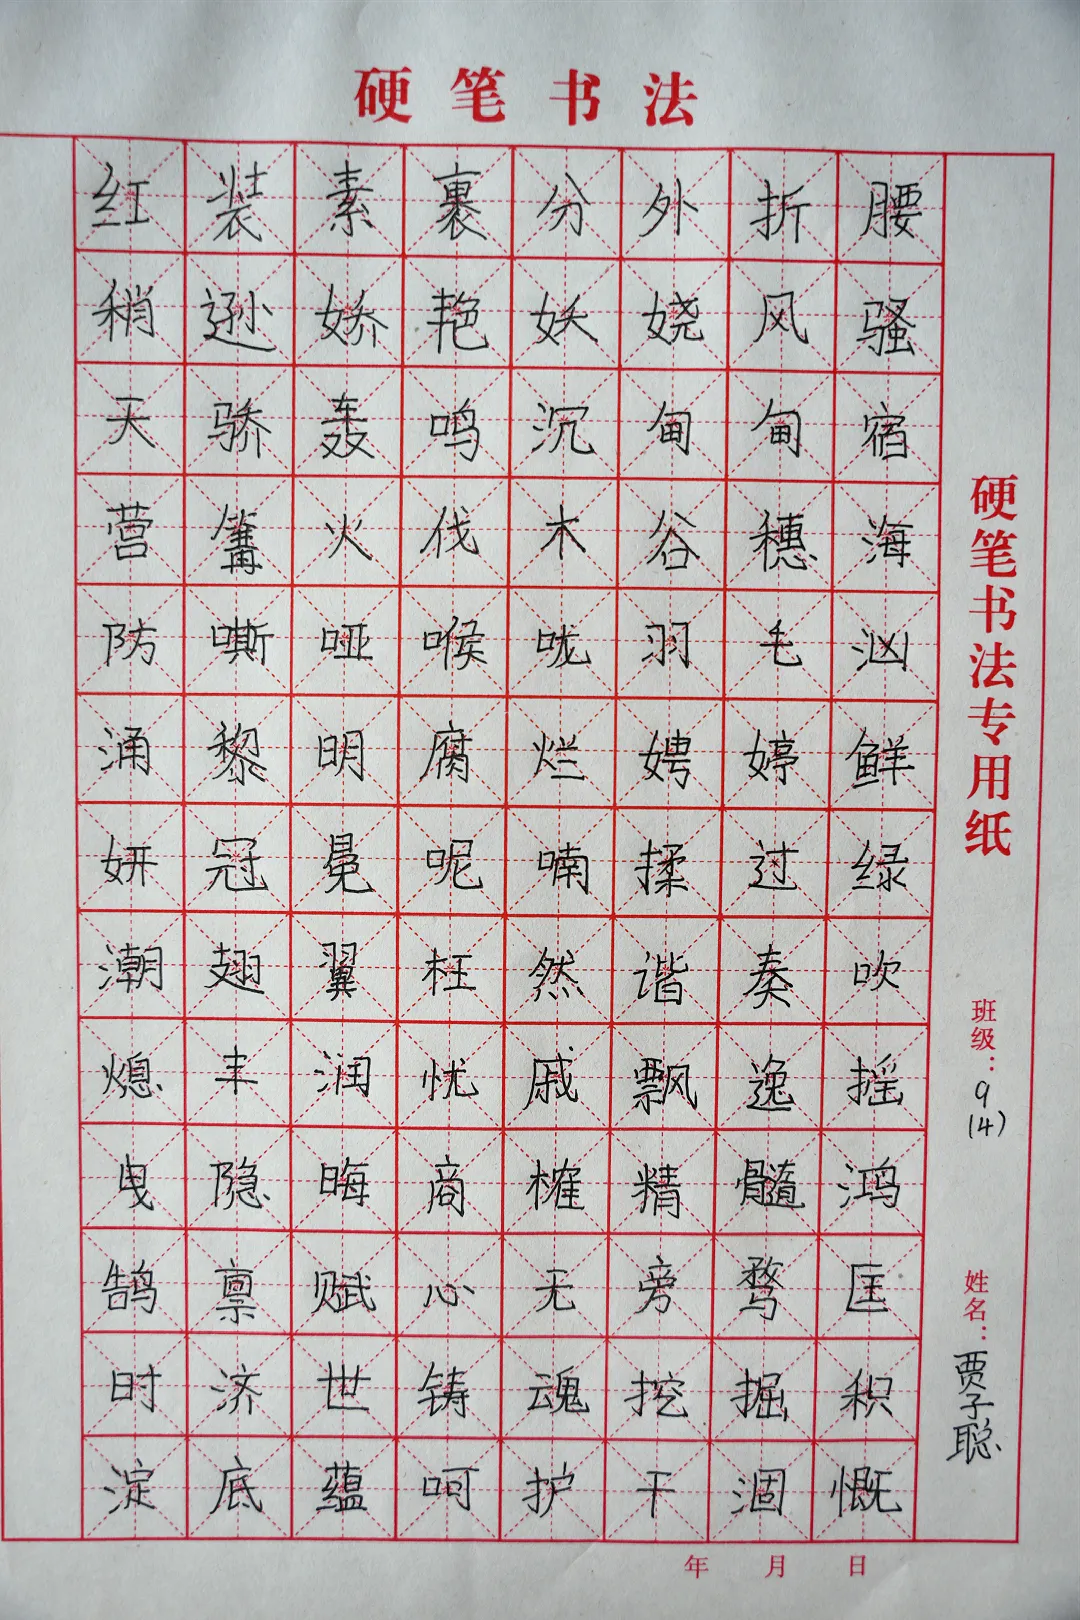 硬笔书法
红装素裹分外折腰
稍逊娇艳妖娆风骚
天骄轰鸣沉甸甸宿
营篝火伐木谷穗海
防嘶哑喉咙羽毛汹
涌黎明腐烂娉婷鲜
妍冠冕呢喃揉过绿
潮翅翼枉然谐奏吹
熄丰润忧戚飘逸摇
曳隐晦商榷精髓鸿
鹄禀赋心无旁骛匡
时济世铸魂挖掘积
淀底蕴呵护干涸慨
硬笔书法专用纸
班级：9(4)
姓名：贾子聪
年 月 日